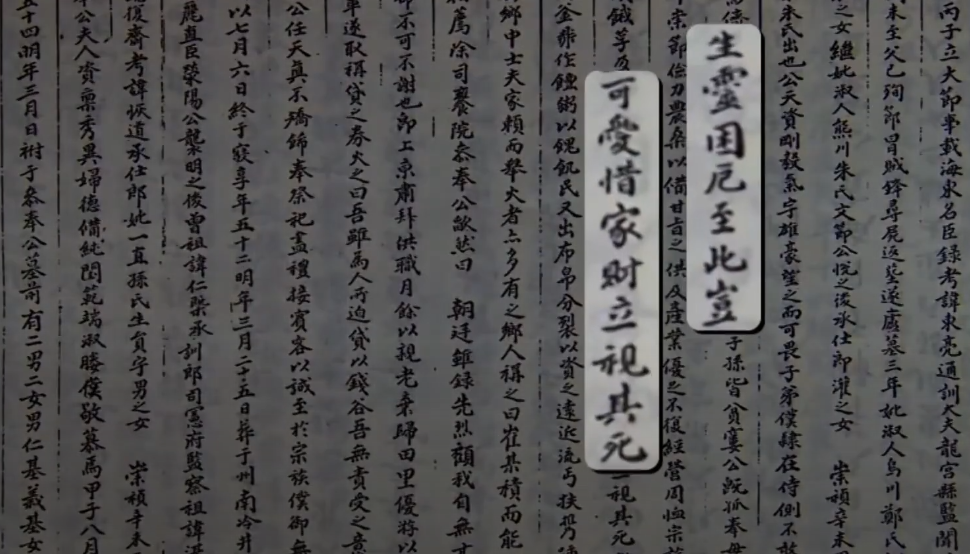 丙子立大節事載海東名臣錄考諱東亮通訓大夫龍宮縣監
未至父已殉節冒賊鋒尋屍返葬遂廬墓三年妣淑人烏川鄭氏
之女繼妣淑人熊川朱氏文節公悅之後承仕郎灌之女 崇禎辛未
朱氏出也公天資剛毅氣宇雄豪望之而可畏子弟僕隸在侍側不
生靈困厄至此豈
子孫皆貧窶公旣孤奉母
崇節儉力農桑以備甘旨之供及產業優之不復經營周恤宗
可愛惜家財立視其死
視其死
釜鬻作饘粥以餽飢民又出布帛分裂以資之遠近流丐扶
鄉中士夫家賴而擧火者亦多有之鄉人稱之曰崔某積而能
薦除司饔院參奉公歎然曰 朝廷雖錄先烈顧我自無
不可不謝也卽上京肅拜供職月餘以親老棄歸田里優將以
遂取稱貸之券火之曰吾雖爲人所迫貸以錢谷吾無責受之意
公任天眞不矯飾奉祭祀盡禮接賓客以誠至於宗族僕御無
以七月六日終于寢享年五十二明年三月二十五日葬于州南冷井
麗直臣滎陽公襲明之後曾祖諱仁榘承訓郎司憲府監察祖諱
後齋考諱恢道承仕郎妣一直孫氏生員宇男之女 崇禎辛未
公夫人資稟秀異婦德備純閨範端淑媵僕敬慕焉甲子八月
五十四明年三月日祔于參奉公墓前有二男二女男仁基義基女